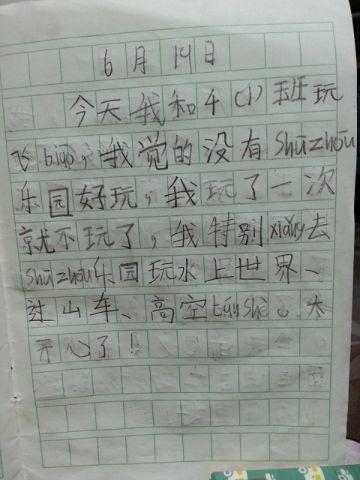 6月19日
今天我和4(1)班玩
飞biāo,我觉的没有Shūzhōu
乐园好玩,我玩了一次
就不玩了,我特别xiǎng去
Shūzhōu乐园玩水上世界、
过山车、高空tánshè。太
开心了!